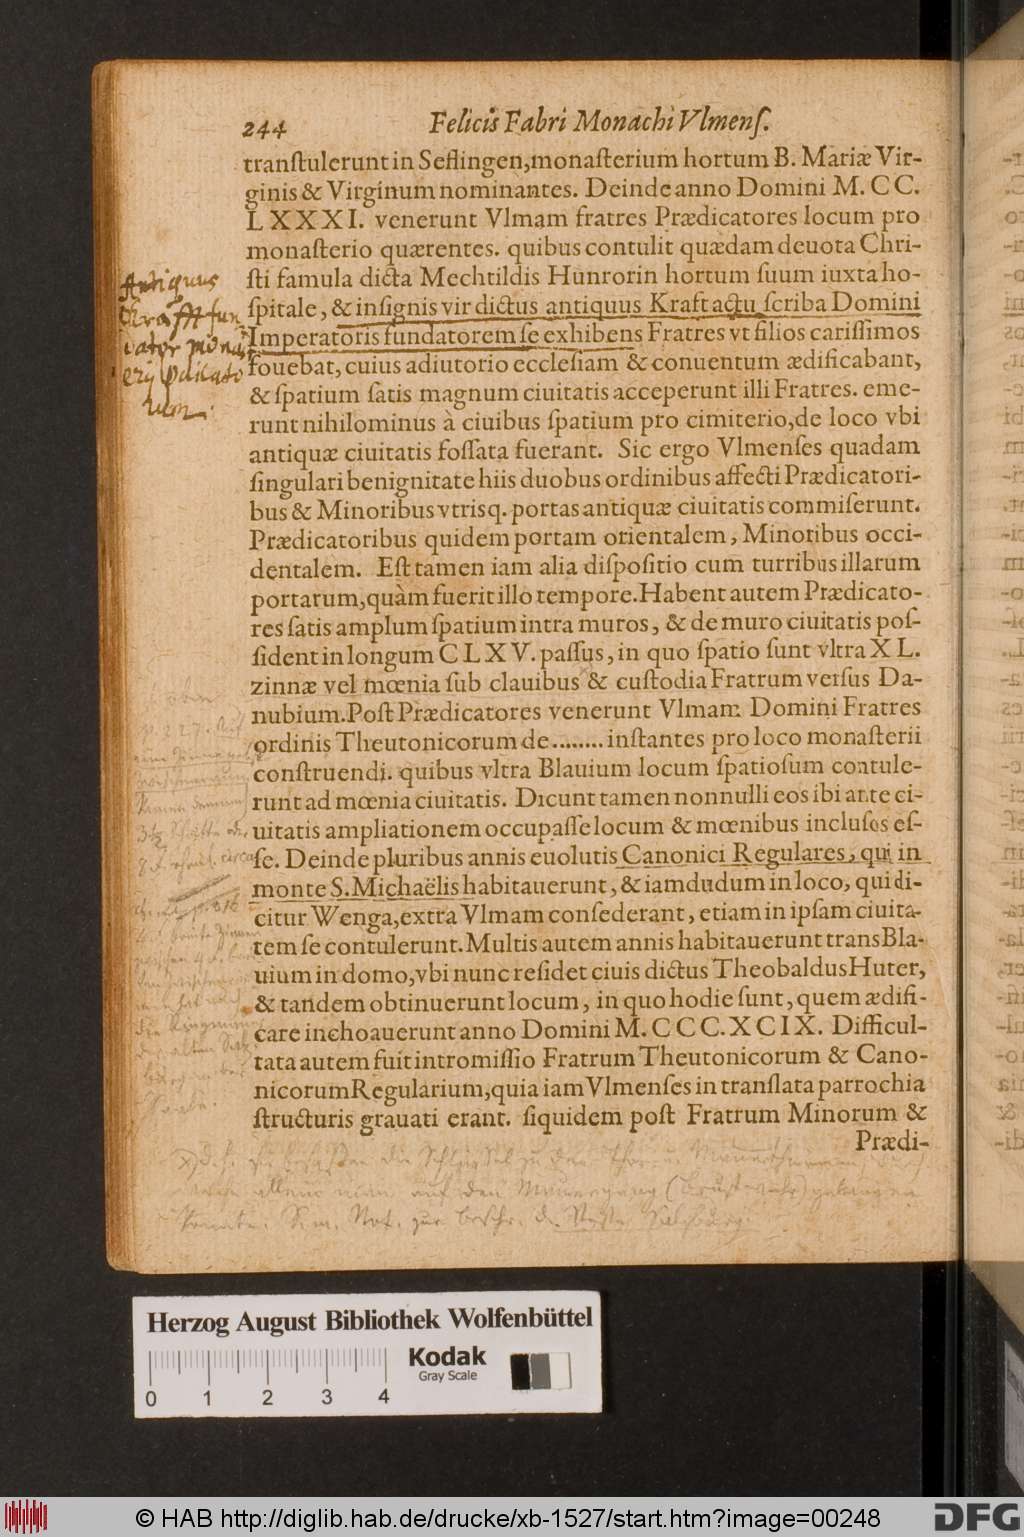 244 Felicis Fabri Monachi Vlmenſ.
tranſtulerunt in Seflingen, monaſterium hortum B. Mariæ Vir-
ginis & Virginum nominantes. Deinde anno Domini M. C C.
L X X X I. venerunt Vlmam fratres Prædicatores locum pro
monaſterio quærentes. quibus contulit quædam deuota Chri-
ſti famula dicta Mechtildis Hunrorin hortum ſuum iuxta ho-
ſpitale, & inſignis vir dictus antiquus Kraft actu ſcriba Domini
Imperatoris fundatorem ſe exhibens Fratres vt filios cariſſimos
fouebat, cuius adiutorio eccleſiam & conuentum ædificabant,
& ſpatium ſatis magnum ciuitatis acceperunt illi Fratres. eme-
runt nihilominus à ciuibus ſpatium pro cimiterio, de loco vbi
antiquæ ciuitatis foſſata fuerant. Sic ergo Vlmenſes quadam
ſingulari benignitate hiis duobus ordinibus affecti Prædicatori-
bus & Minoribus vtrisq. portas antiquæ ciuitatis commiſerunt.
Prædicatoribus quidem portam orientalem, Minoribus occi-
dentalem. Eſt tamen iam alia diſpoſitio cum turribus illarum
portarum, quàm fuerit illo tempore. Habent autem Prædicato-
res ſatis amplum ſpatium intra muros, & de muro ciuitatis poſ-
ſident in longum C L X V. paſſus, in quo ſpatio ſunt vltra X L.
zinnæ vel mœnia ſub clauibus & cuſtodia Fratrum verſus Da-
nubium. Poſt Prædicatores venerunt Vlmam Domini Fratres
ordinis Theutonicorum de ........ inſtantes pro loco monaſterii
conſtruendi. quibus vltra Blauium locum ſpatioſum contule-
runt ad mœnia ciuitatis. Dicunt tamen nonnulli eos ibi ante ci-
uitatis ampliationem occupaſſe locum & mœnibus incluſos eſ-
ſe. Deinde pluribus annis euolutis Canonici Regulares, qui in
monte S. Michaëlis habitauerunt, & iamdudum in loco, qui di-
citur Wenga, extra Vlmam conſederant, etiam in ipſam ciuita-
tem ſe contulerunt. Multis autem annis habitauerunt trans Bla-
uium in domo, vbi nunc reſidet ciuis dictus Theobaldus Huter,
& tandem obtinuerunt locum, in quo hodie ſunt, quem ædifi-
care inchoauerunt anno Domini M. C C C. X C I X. Difficul-
tata autem fuit intromiſſio Fratrum Theutonicorum & Cano-
nicorum Regularium, quia iam Vlmenſes in tranſlata parrochia
ſtructuris grauati erant. ſiquidem poſt Fratrum Minorum &
Prædi-
Antiquus
Krafft fun
dator mona
Herzog August Bibliothek Wolfenbüttel
Kodak
Gray Scale
0 1 2 3 4
© HAB http://diglib.hab.de/drucke/xb-1527/start.htm?image=00248
DFG